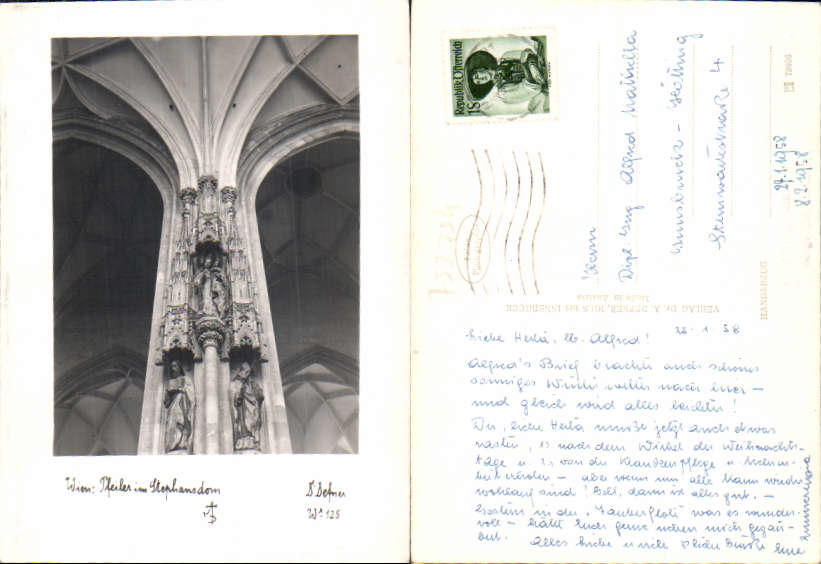 Wien: Pfeiler im Stephansdom
Dr Defner
Wn 125
Republik Österreich
1S
Herrn
Dipl Ing Alfred
Innsbruck - Hötting
4
27.1.1958
8.2.1958
HANDABZUG
VERLAG Dr. A. DEFNER, IGLS bei INNSBRUCK
Made in Austria
22.1.58
Liebe Herta, lb. Alfred!
Alfred's Brief brachte auch schönes
sonniges Winterwetter nach hier —
und gleich wird alles leichter!
Du, liebe Herta musst jetzt auch etwas
rasten, is nach dem Wirbel der Weihnachts-
tage u. is von der Krankenpflege u.
— aber wenn nur alle Mann wieder
wohlauf sind! Gelt, dann ist alles gut. —
Gestern in der "Zauberflöte" war es wunder-
voll — hätte Euch gerne neben mich
Alles Liebe u. viele Grüße Eure